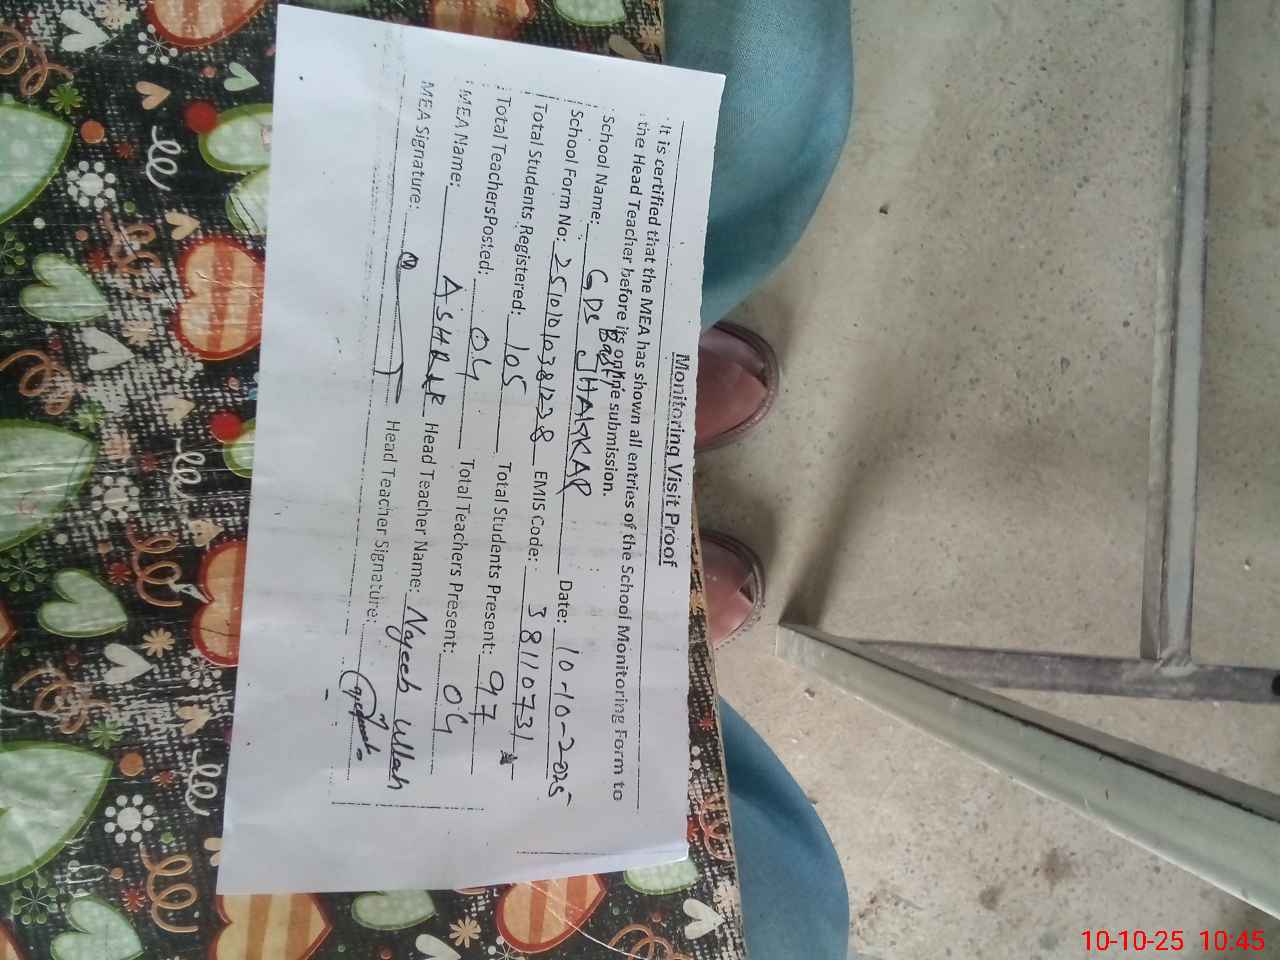 Monitoring Visit Proof
It is certified that the MEA has shown all entries of the School Monitoring Form to
the Head Teacher before its online submission.
School Name: GPS Basti JHARKAR Date: 10-10-2025
School Form No: 2510101038238 EMIS Code: 38110731
Total Students Registered: 105 Total Students Present: 97
Total TeachersPosted: 04 Total Teachers Present: 04
MEA Name: ASHRAF Head Teacher Name: Najeeb Ullah
MEA Signature: Head Teacher Signature:
10-10-25 10:45